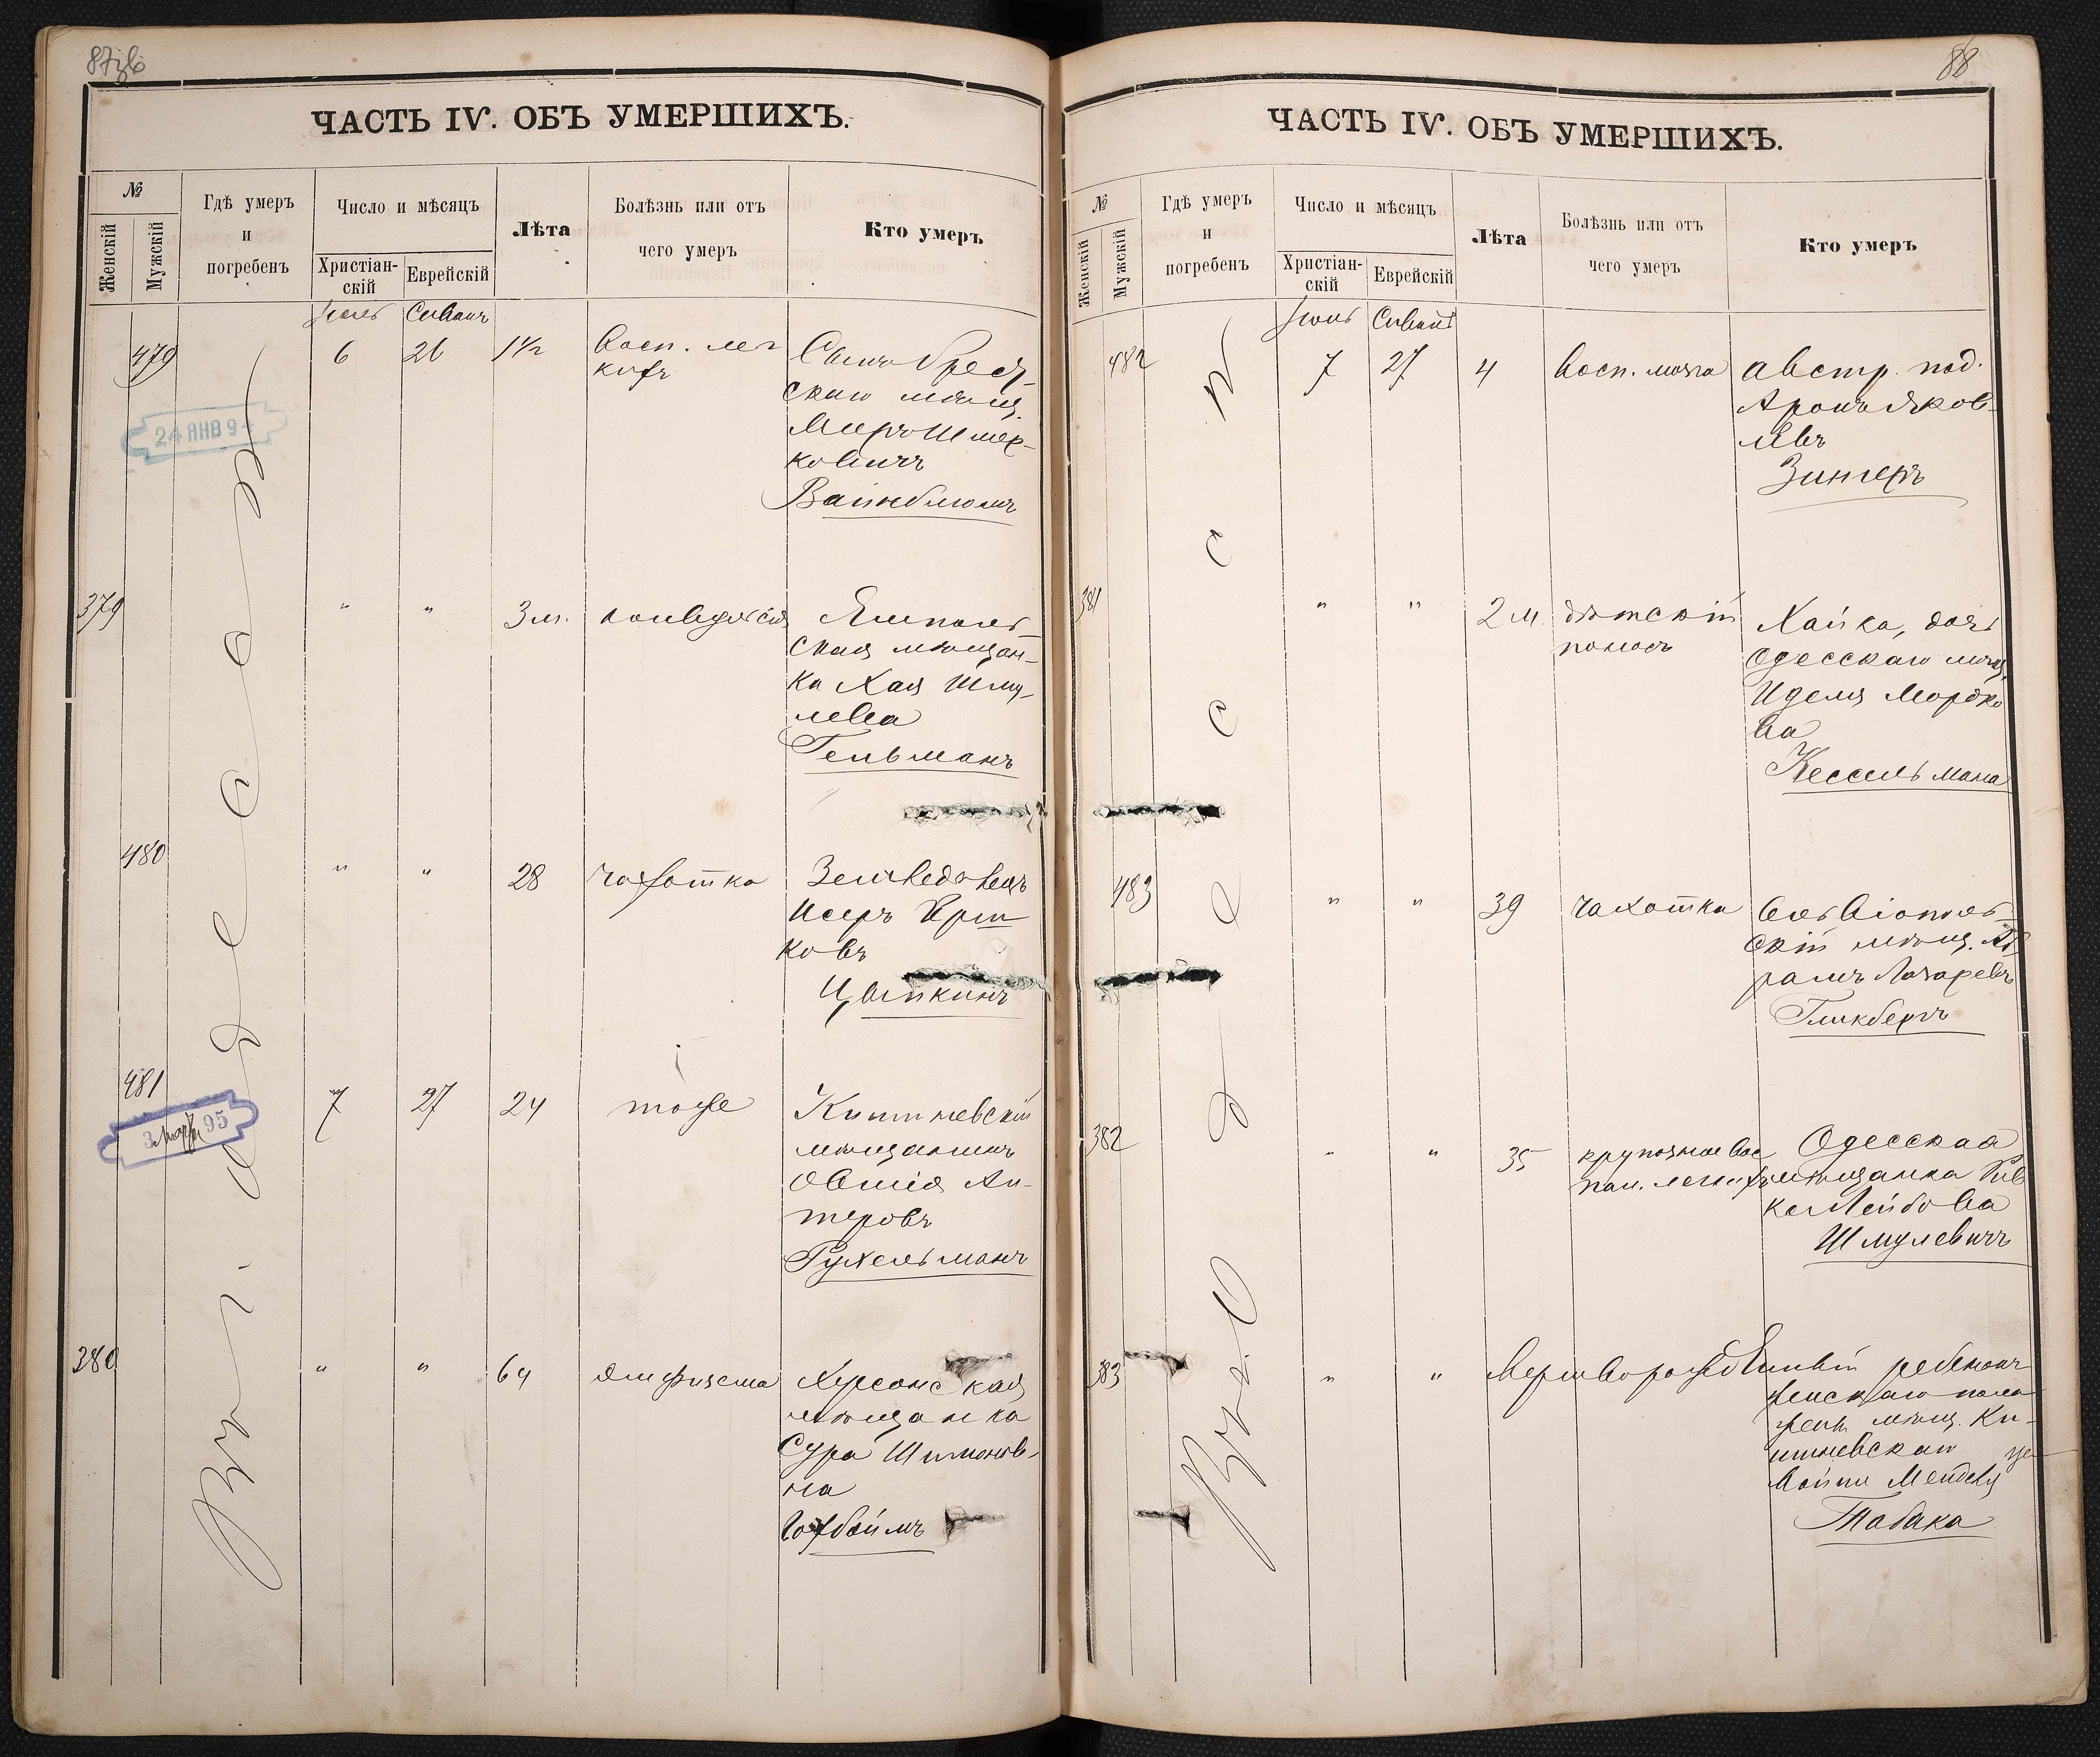 87зв
ЧАСТЬ IV. ОБЪ УМЕРШИХЪ.
№
Женскій
Мужскій
Гдѣ умеръ
и
погребенъ
Число и мѣсяцъ
Христіан-
скій
Еврейскій
Лѣта
Болѣзнь или отъ
чего умеръ
Кто умеръ
Въ г. Одессѣ
Іюнь Сиванъ
479 6 26 1½
Восп. лег
кихъ
Сынъ Брест-
скаго мѣщ.
ковичъ
Вайнблюмъ
24 ЯНВ 9
379 " " 3 м.
Ямполь-
ская мѣщан-
ка Хая Шму-
лева
Гельманъ
480 " " 28 чахотка
Землевед
ковъ
Цыпкинъ
481 7 27 24 тоже
Кишиневскій
мѣщанинъ
Овшія Ан-
теровъ
Рухельманъ
3 95
380 " " 64 Эмфизема
Херсонская
мѣщанка
Сура Шимонов-
на
боймъ
88
ЧАСТЬ IV. ОБЪ УМЕРШИХЪ.
№
Женскій
Мужскій
Гдѣ умеръ
и
погребенъ
Число и мѣсяцъ
Христіан-
скій
Еврейскій
Лѣта
Болѣзнь или отъ
чего умеръ
Кто умеръ
Въ г. Одессѣ
Іюнь Сиванъ
482 7 27 4 Восп. мозга
австр. под.
Аронъ Яков-
левъ
Зингеръ
381 " " 2 м. дѣтскій
поносъ
Хайка, дочь
Одесскаго мѣщ.
Иделя Мордко
ва
Кессельмана
483 " " 39 чахотка
Ольвіополь-
скій мѣщ. Аб
рамъ Лазаревъ
Гликбергъ
382 " " 35 крупозное вос
пал. легкихъ
Одесская
мѣщанка Рив
ка Лейбова
Шмулевичъ
383 " " Мертворожденный ребенокъ
женскаго пола
мѣщ. Ки-
шиневскаго
Табака